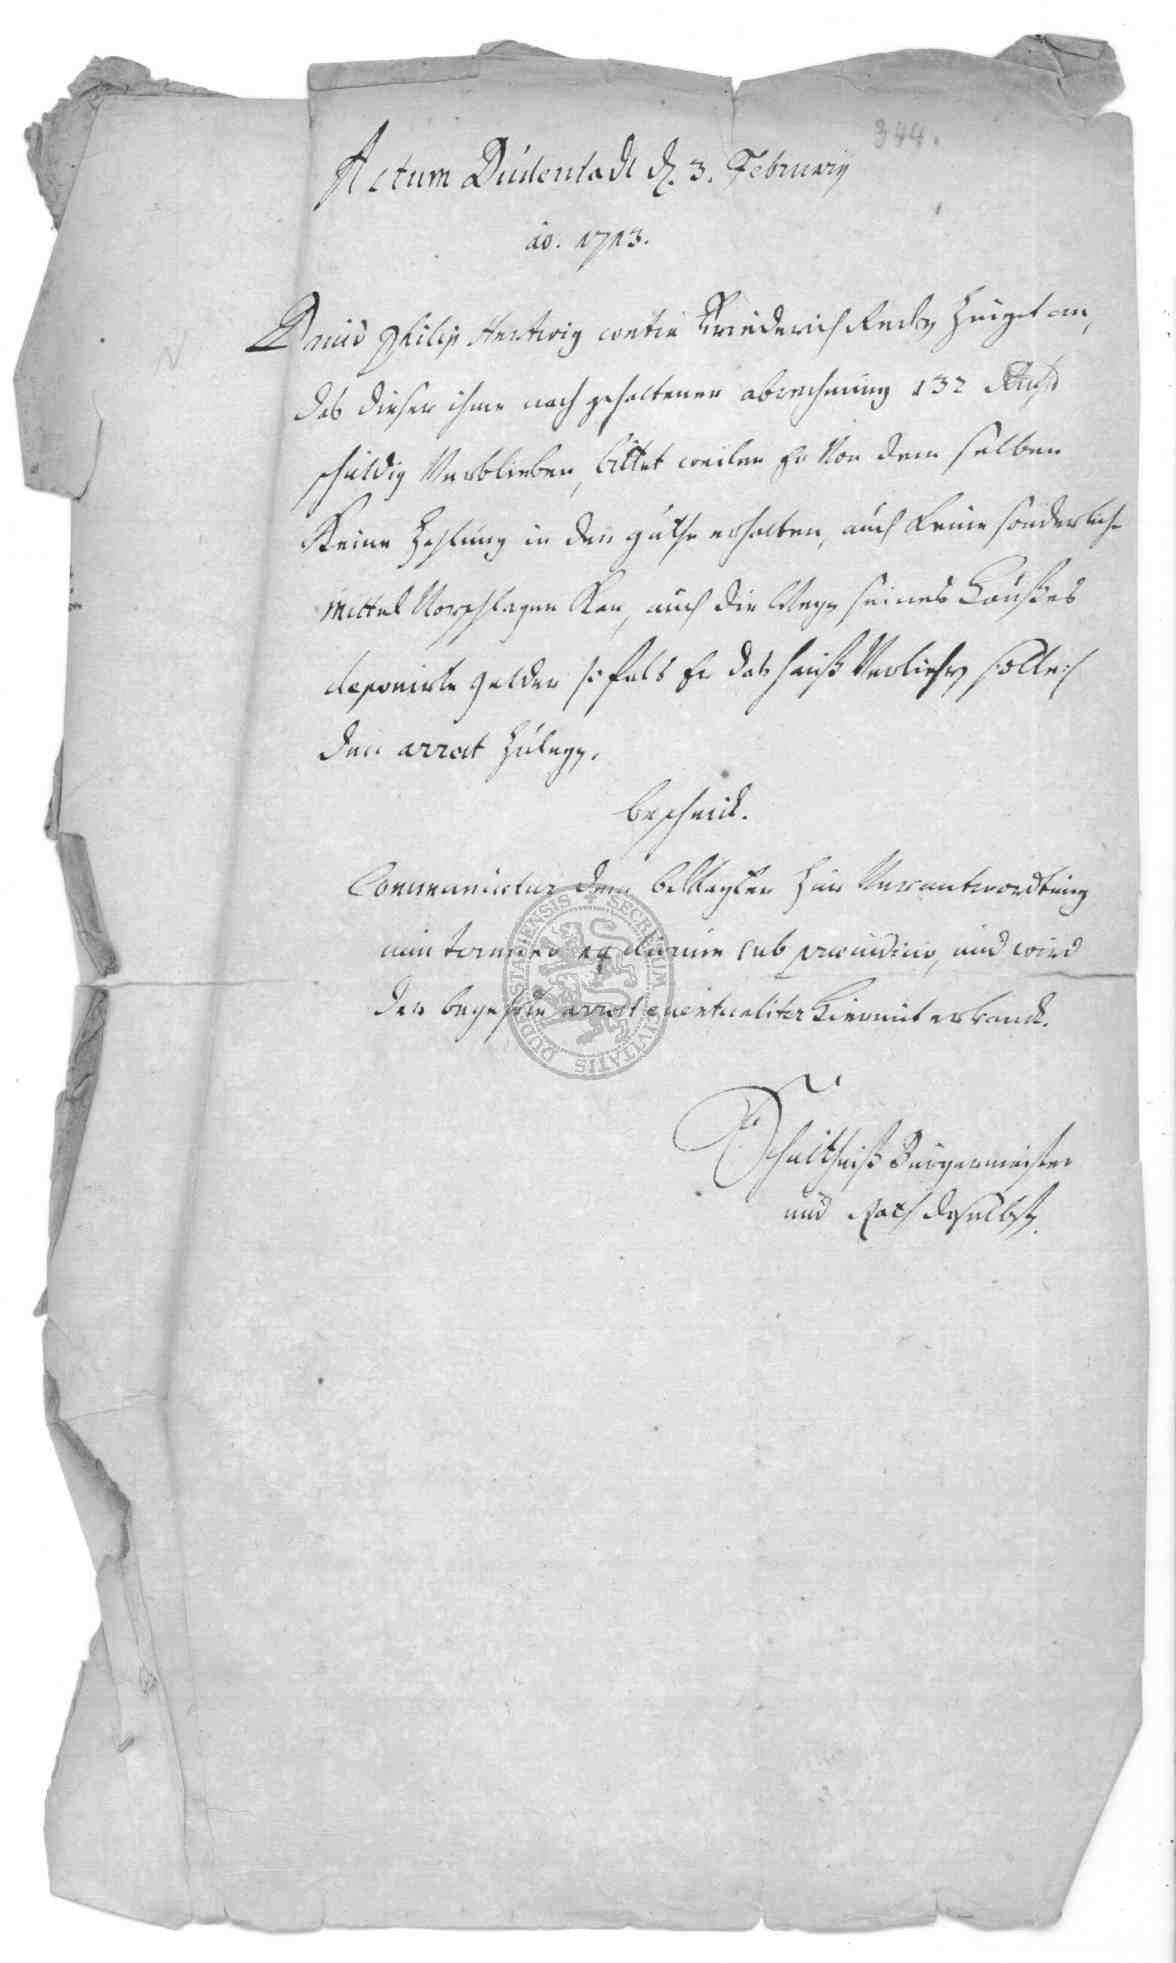 344.
Actum Duderstadt d. 3. Februarij
ao. 1713.
David Philip Hertwig contra Friederich zeiget an,
das dieser ihme nach gehaltener abrechnung 132 Rthlr
schuldig Verblieben, bittet weilen Er Von dem selben
Keine Zahlung in der güthe erhalten, auch keine sonderliche
mittel Vorschlagen Kan, auch die wegen seines Haußes
deponirte gelder falß Er das hauß Verliehren solte
den arrest Zulegen.
bescheid.
Communicetur dem beklagten Zur Verantwordtung
cum termino 14 dierum sub praeiudicio, und wird
der begehrte arrest eventualiter hiermit erkandt.
Schultheiß Burgermeister
und Rath daselbst.
SECRETUM CIVITATIS DUDERSTADIENSIS